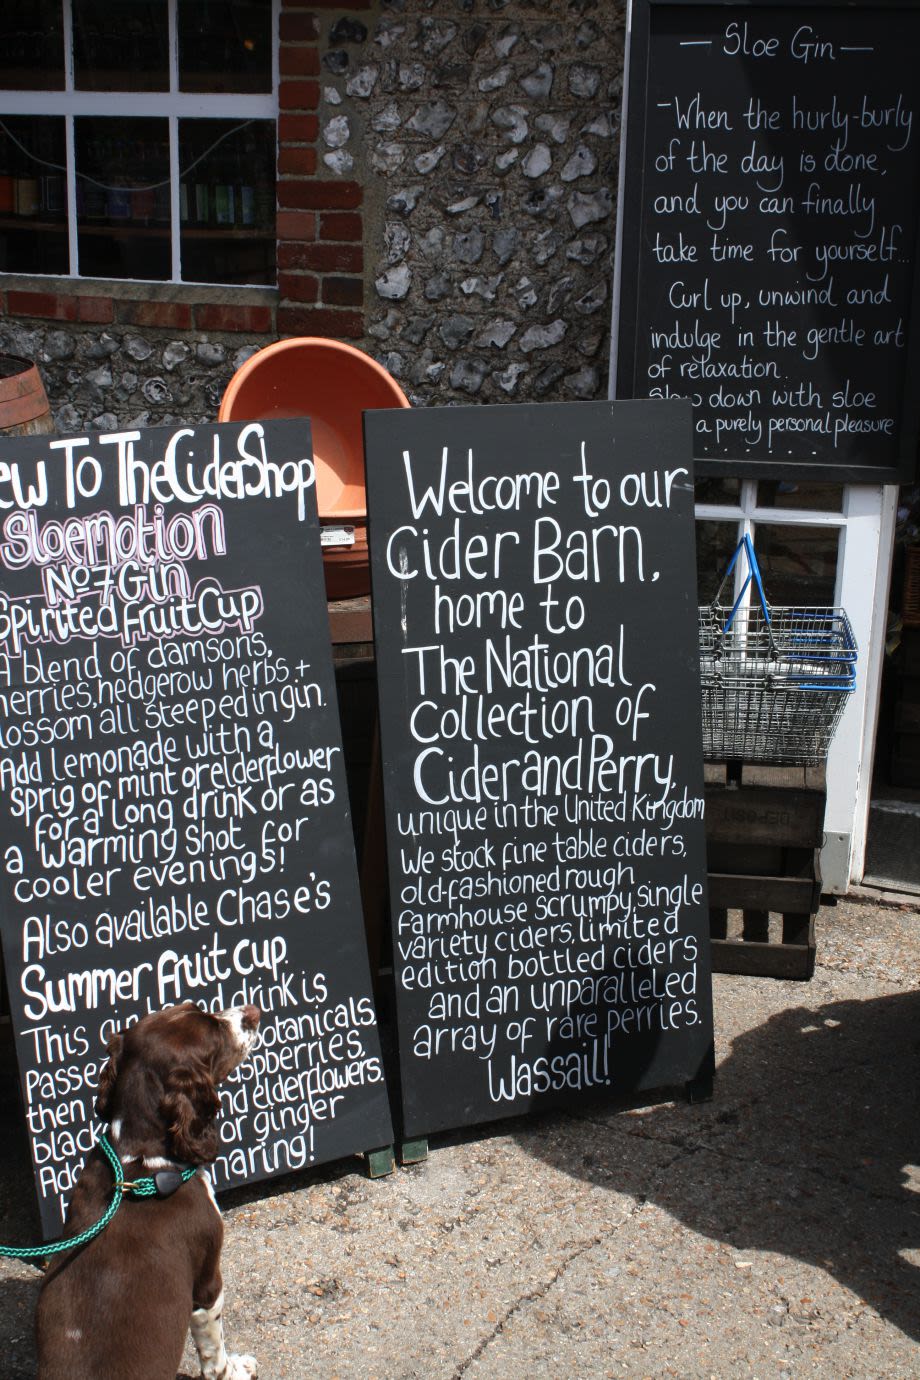 ew To The Cider Shop
Sloemotion
No 7 Gin
Spirited Fruit Cup
A blend of damsons,
herries, hedgerow herbs +
lossom all steeped in gin.
Add lemonade with a
sprig of mint or elderflower
for a long drink or as
a warming shot for
cooler evenings!
Also available Chase's
Summer Fruit Cup.
This gin d drink is
passe botanicals,
then raspberries,
black nd elderflowers.
Add or ginger
haring!
Welcome to our
Cider Barn,
home to
The National
Collection of
Cider and Perry,
unique in the United Kingdom
We stock fine table ciders,
old-fashioned rough
farmhouse scrumpy, single
variety ciders, limited
edition bottled ciders
and an unparalleled
array of rare perries.
Wassail!
— Sloe Gin —
- When the hurly-burly
of the day is done,
and you can finally
take time for yourself...
Curl up, unwind and
indulge in the gentle art
of relaxation.
Slow down with sloe
a purely personal pleasure
. . . . . .
DEPOSIT